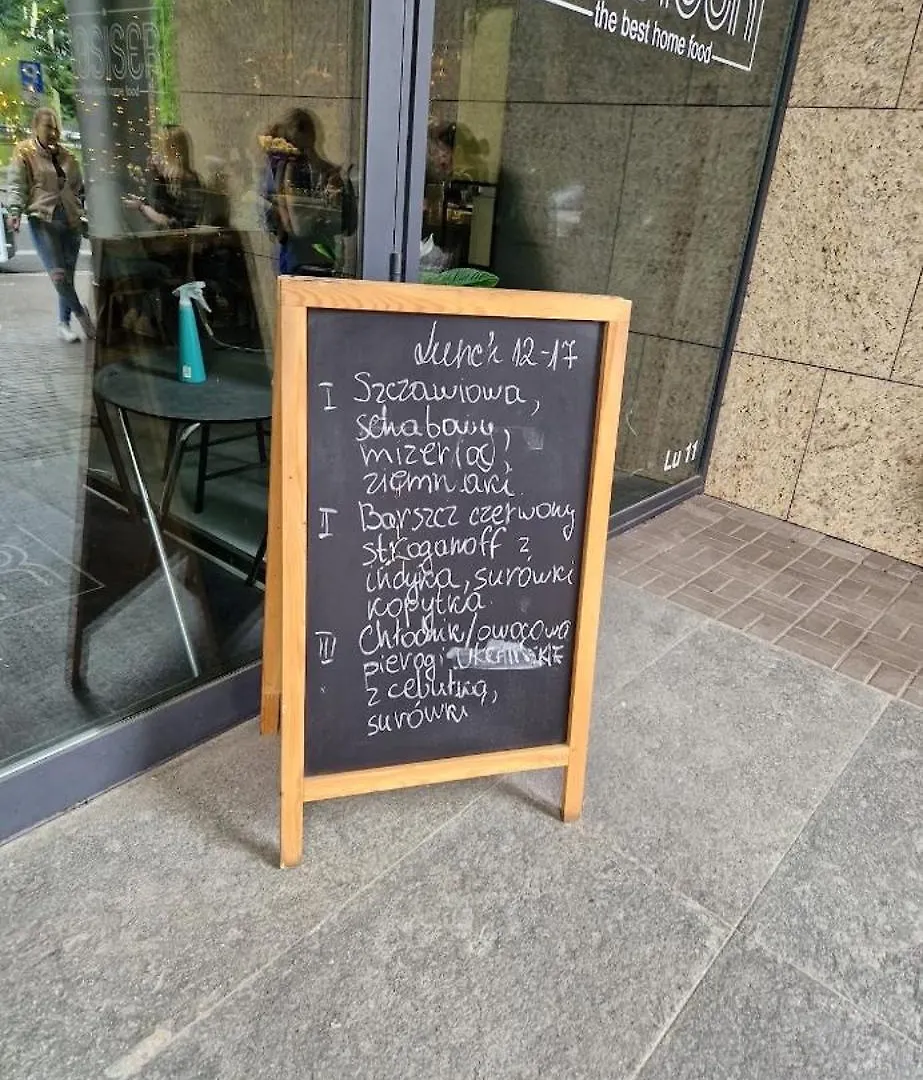 the best home food
the best home food
Lunch 12-17
I Szczawiowa,
schabowy,
mizeria,
ziemniaki
I Barszcz czerwony
stroganoff z
indyka, surówki
kopytka.
III Chłodnik/owocowa
pierogi UKRAIŃSKIE
z cebulką,
surówki
Lu 11